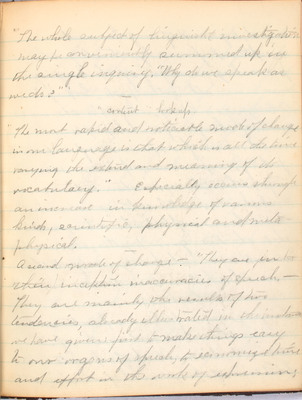 "The whole subject of linguistic investigation
may be conveniently summed up in
the single inquiry, Why do we speak as
we do?"
"The most rapid and noticeable mode of change
in our language is that which is all the time
varying the extent and meaning of its
vocabulary." Especially occurs through
an increase in knowledge of various
kinds, scientific, physical and meta
physical.
A second mode of change – "They are, in
their inception inaccuracies of speech –
They are mainly the results of two
tendencies, already illustrated in the instances
we have given: first to make things easy
to our organs of speech, to economize time
and effort in the work of expression;